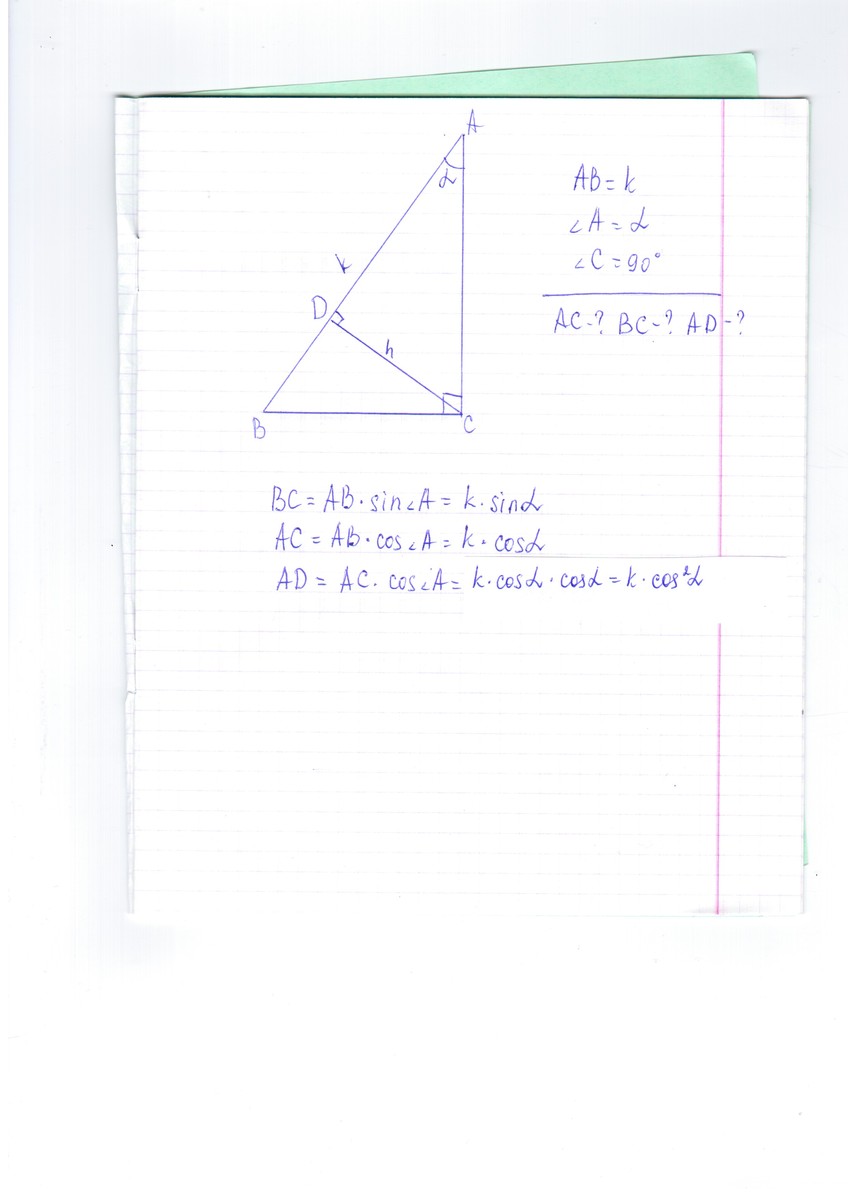 A
α
k
D
h
B
C
AB = k
∠A = α
∠C = 90°
AC-? BC-? AD-?
BC = AB · sin∠A = k · sinα
AC = AB · cos∠A = k · cosα
AD = AC · cos∠A = k · cosα · cosα = k · cos²α